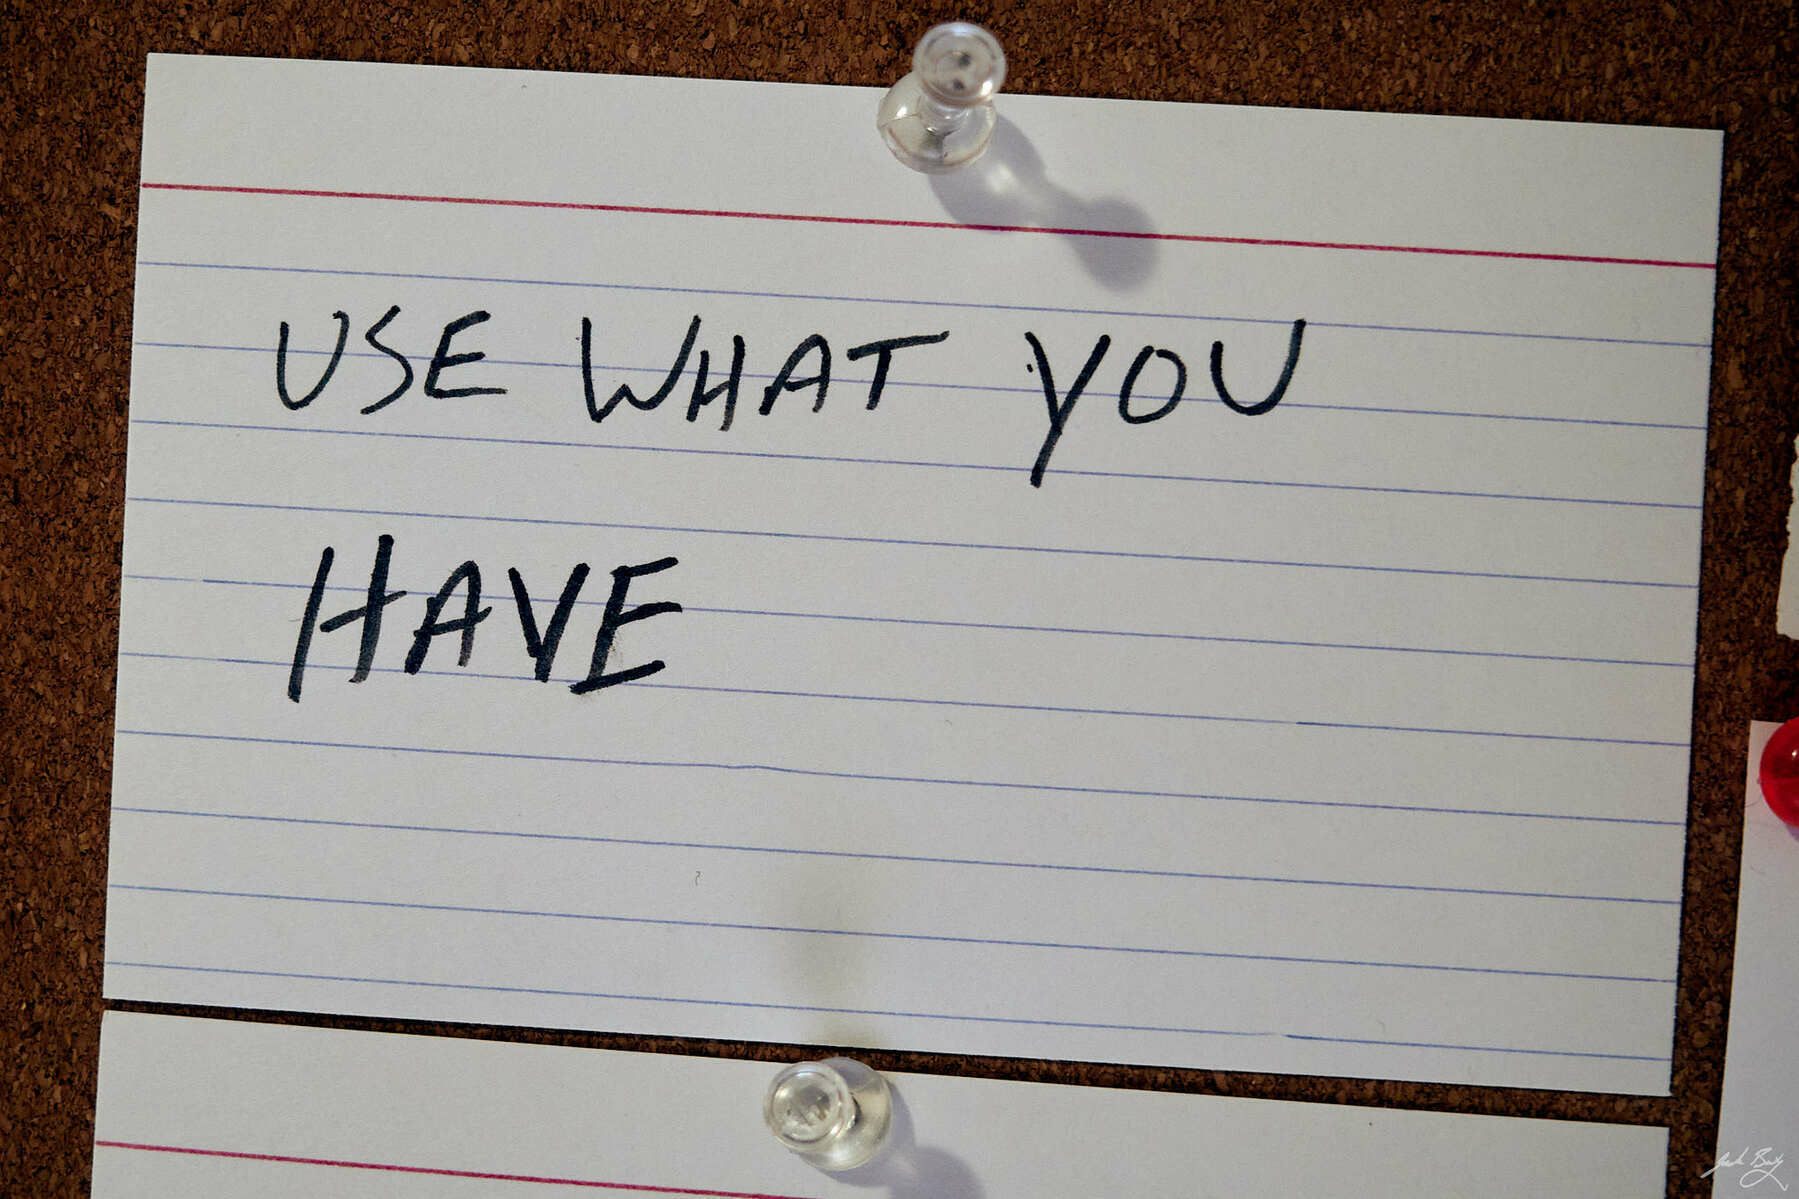 USE WHAT YOU
HAVE